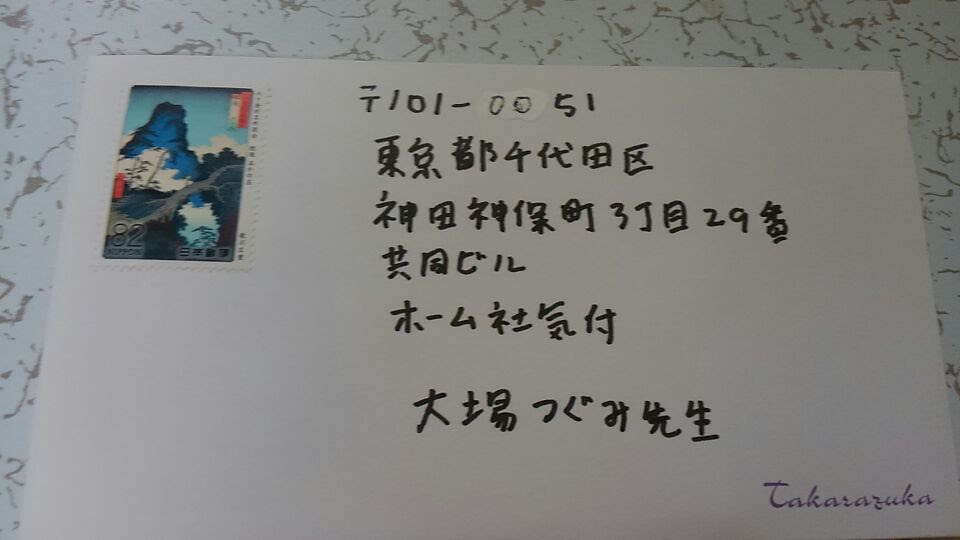 〒101-0051
東京都千代田区
神田神保町3丁目29番
共同ビル
ホーム社気付
大場つぐみ先生
82
NIPPON
日本郵便
Takarazuka